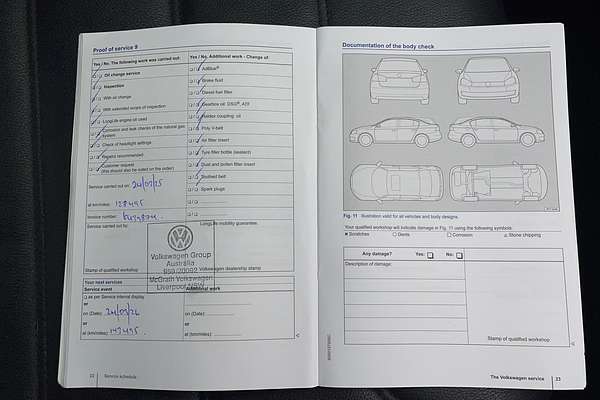 Proof of service 9
Yes / No, The following work was carried out:
Oil change service
Inspection
With oil change
With extended scope of inspection
LongLife engine oil used
Corrosion and leak checks of the natural gas
system
Check of headlight settings
Repairs recommended
Customer request
(this should also be noted on the order)
Service carried out on: 24/03/25
at km/miles: 128495
Invoice number:
Service carried out by:
Stamp of qualified workshop
Your next services
Service event
as per Service interval display
or
on (Date): 24/03/26
or
at (km/miles): 143495
22 Service schedule
Yes / No, Additional work - Change of
AdBlue®
Brake fluid
Diesel fuel filter
Gearbox oil: DSG®, A29
Haldex coupling: oil
Poly V-belt
Air filter insert
Tyre filler bottle (sealant)
Dust and pollen filter insert
Toothed belt
Spark plugs
LongLife mobility guarantee.
Volkswagen Group
Australia
McGrath Volkswagen
Liverpool NSW
Volkswagen dealership stamp
Additional work
on (Date):
or
at (km/miles):
Documentation of the body check
Fig. 11 Illustration valid for all vehicles and body designs.
Your qualified workshop will indicate damage in Fig. 11 using the following symbols:
Scratches Dents Corrosion Stone chipping
Any damage? Yes: No:
Description of damage:
Stamp of qualified workshop
The Volkswagen service 23